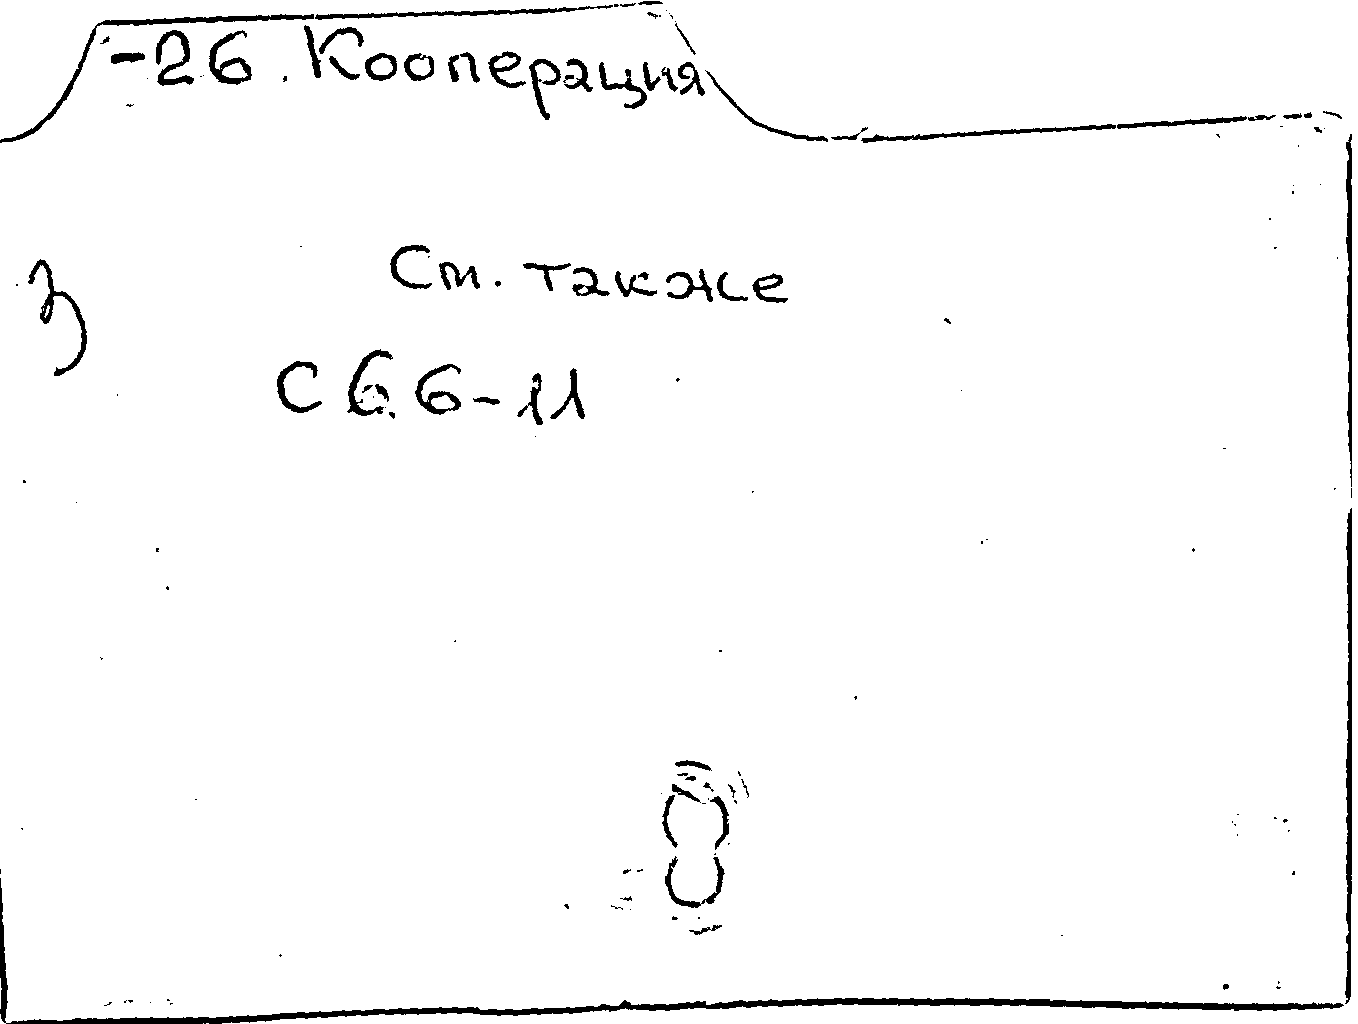 -26. Кооперация
См. также
З
С 6.6-11